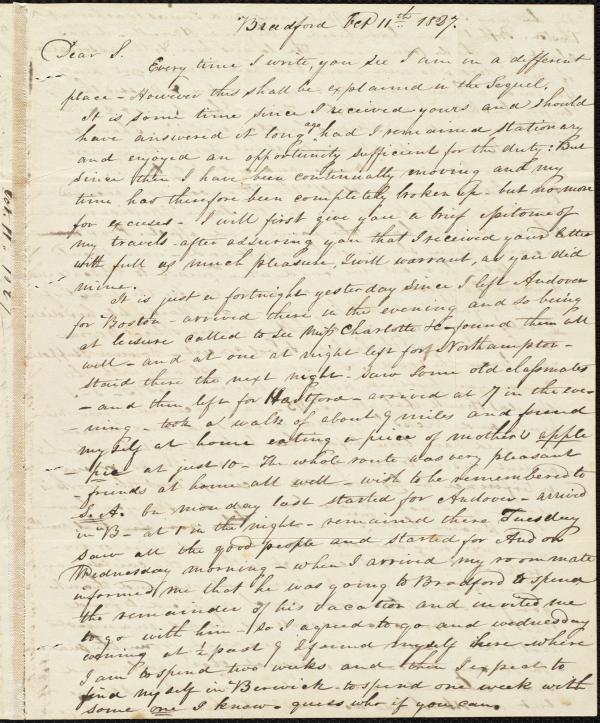 Bradford Feb 11th 1827.
Dear S.
Every time I write, you see I am in a different
place - However this shall be explained in the Sequel,
It is some time since I received yours and should
have answered it long ago had I remained stationary
and enjoyed an opportunity sufficient for the duty: But
since then I have been continually moving and my
time has therefore been completely broken up - but no more
for excuses - I will first give you a brief epitome of
my travels - after assuring you that I received your letter
with full as much pleasure, I will warrant, as you did
mine.
It is just a fortnight yesterday since I left Andover
for Boston - arrived there in the evening and so being
at leisure called to see Miss Charlotte &c - found them all
well - and at one at night left for Northampton -
staid there the next night - saw some old classmates
- and then left for Hartford - arrived at 7 in the eve-
- ning - took a walk of about 9 miles and found
myself at home eating a piece of mother's apple
- pie at just 10 - The whole route was very pleasant
- friends at home all well - wish to be remembered to
S. A. On monday last started for Andover - arrived
in B - at 1 in the night - remained there Tuesday
saw all the good people and started for And on
Wednesday morning - when I arrived my room mate
informed me that he was going to Bradford to spend
the remainder of his vacation and invited me
to go with him - so I agreed to go and wednesday
evening at ½ past 9 I found myself here where
I am to spend two weeks and then I expect to
find myself in Berwick - to spend one week with
some one I know - guess who if you can.